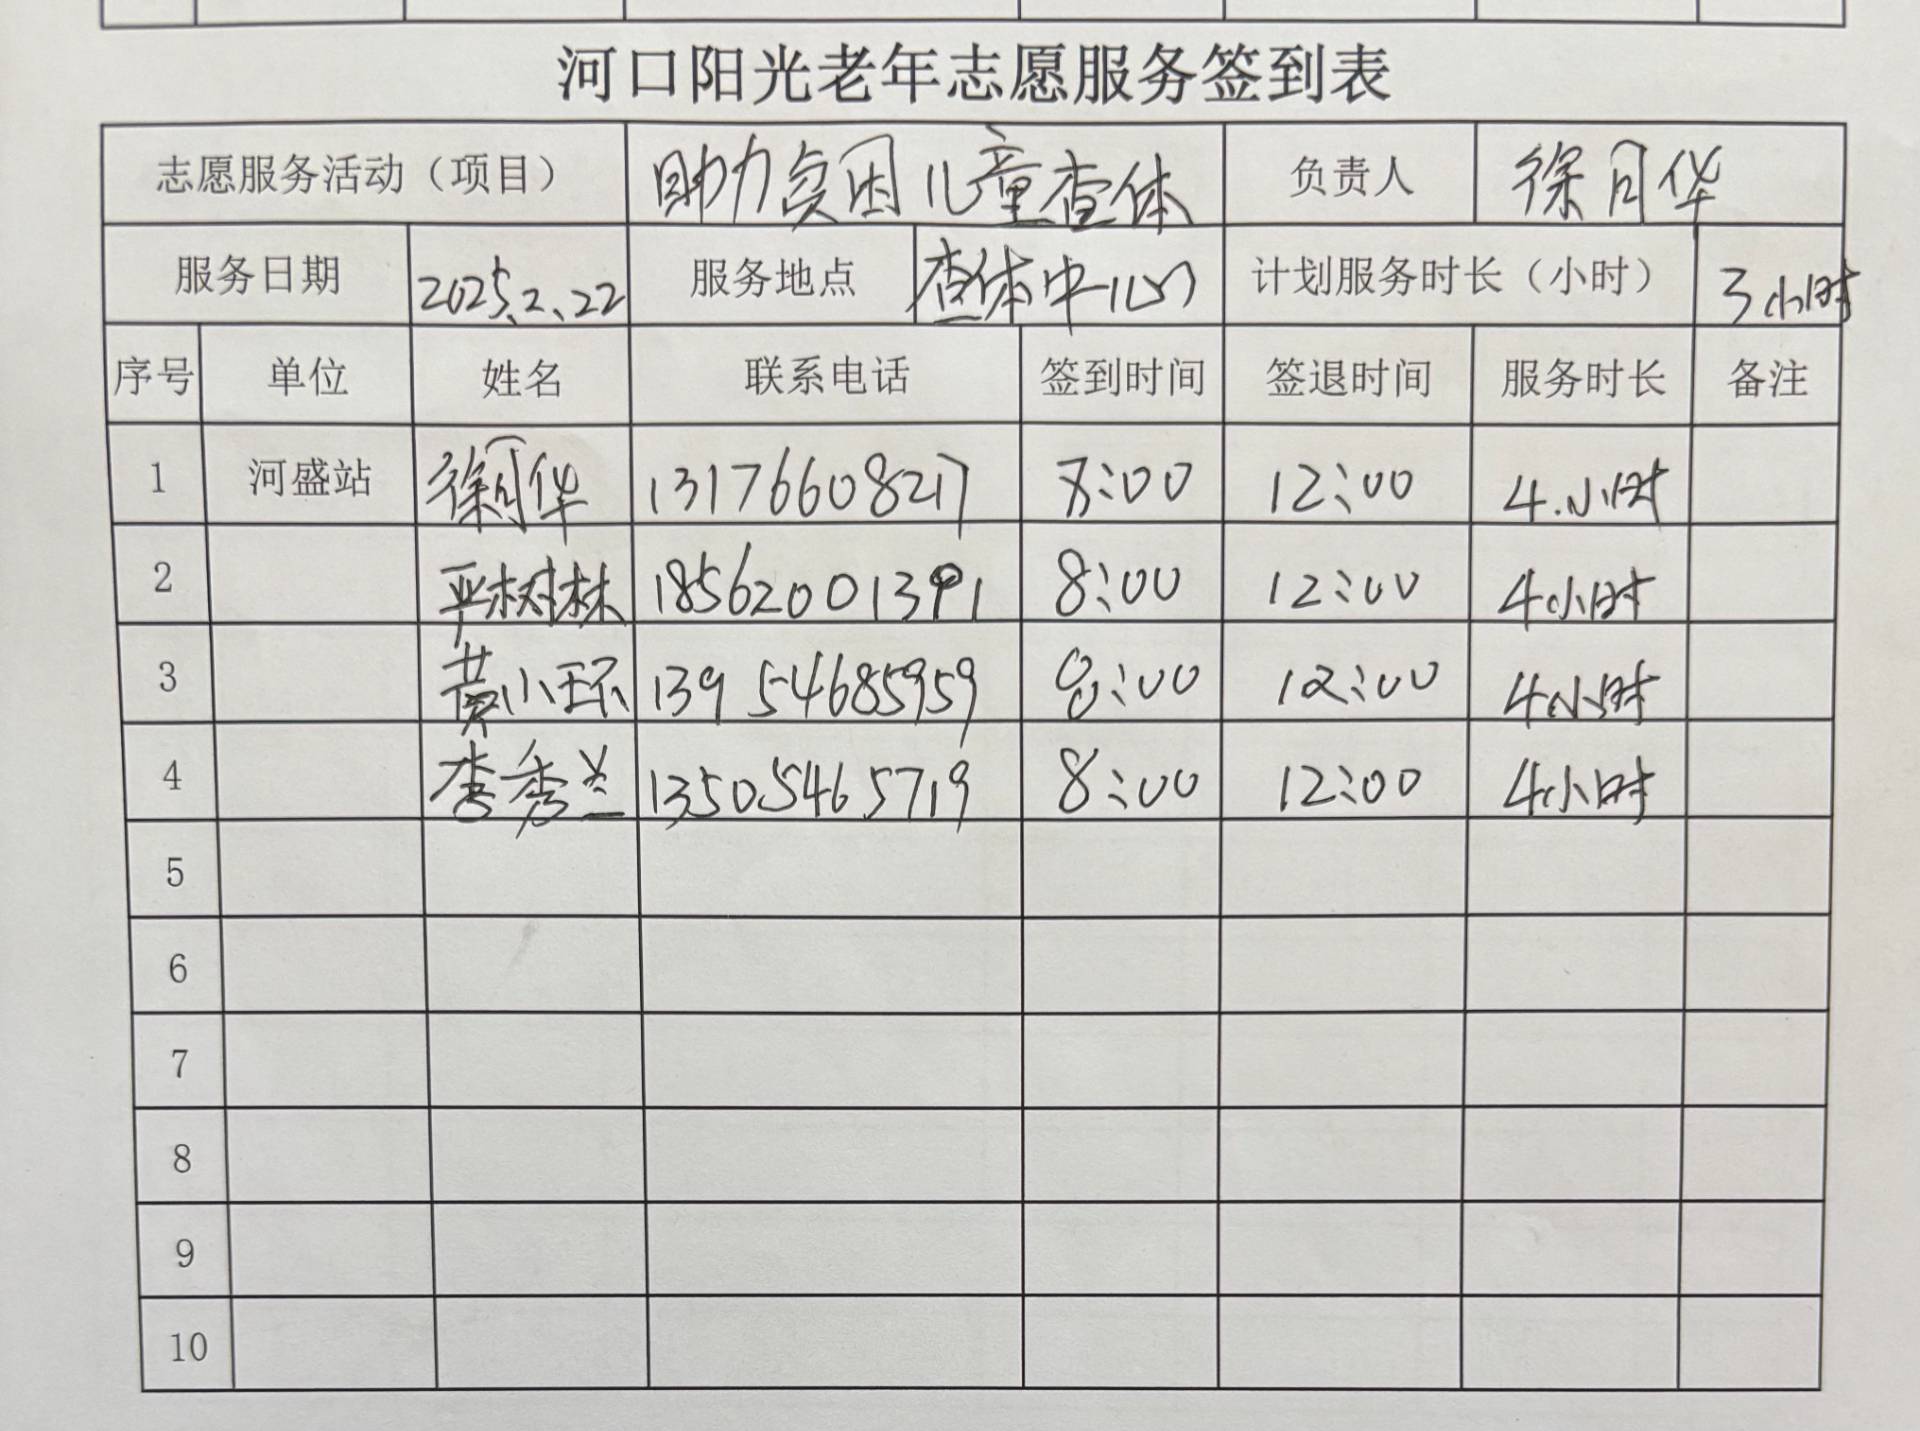 河口阳光老年志愿服务签到表
志愿服务活动（项目） 助力贫困儿童查体 负责人 徐月华
服务日期 2025.2.22 服务地点 查体中心 计划服务时长（小时） 3小时
序号 单位 姓名 联系电话 签到时间 签退时间 服务时长 备注
1 河盛站 徐月华 13176608217 8:00 12:00 4.小时
2 严树林 18562001391 8:00 12:00 4小时
3 黄小环 13954685959 8:00 12:00 4小时
4 李秀兰 13505465719 8:00 12:00 4小时
5
6
7
8
9
10